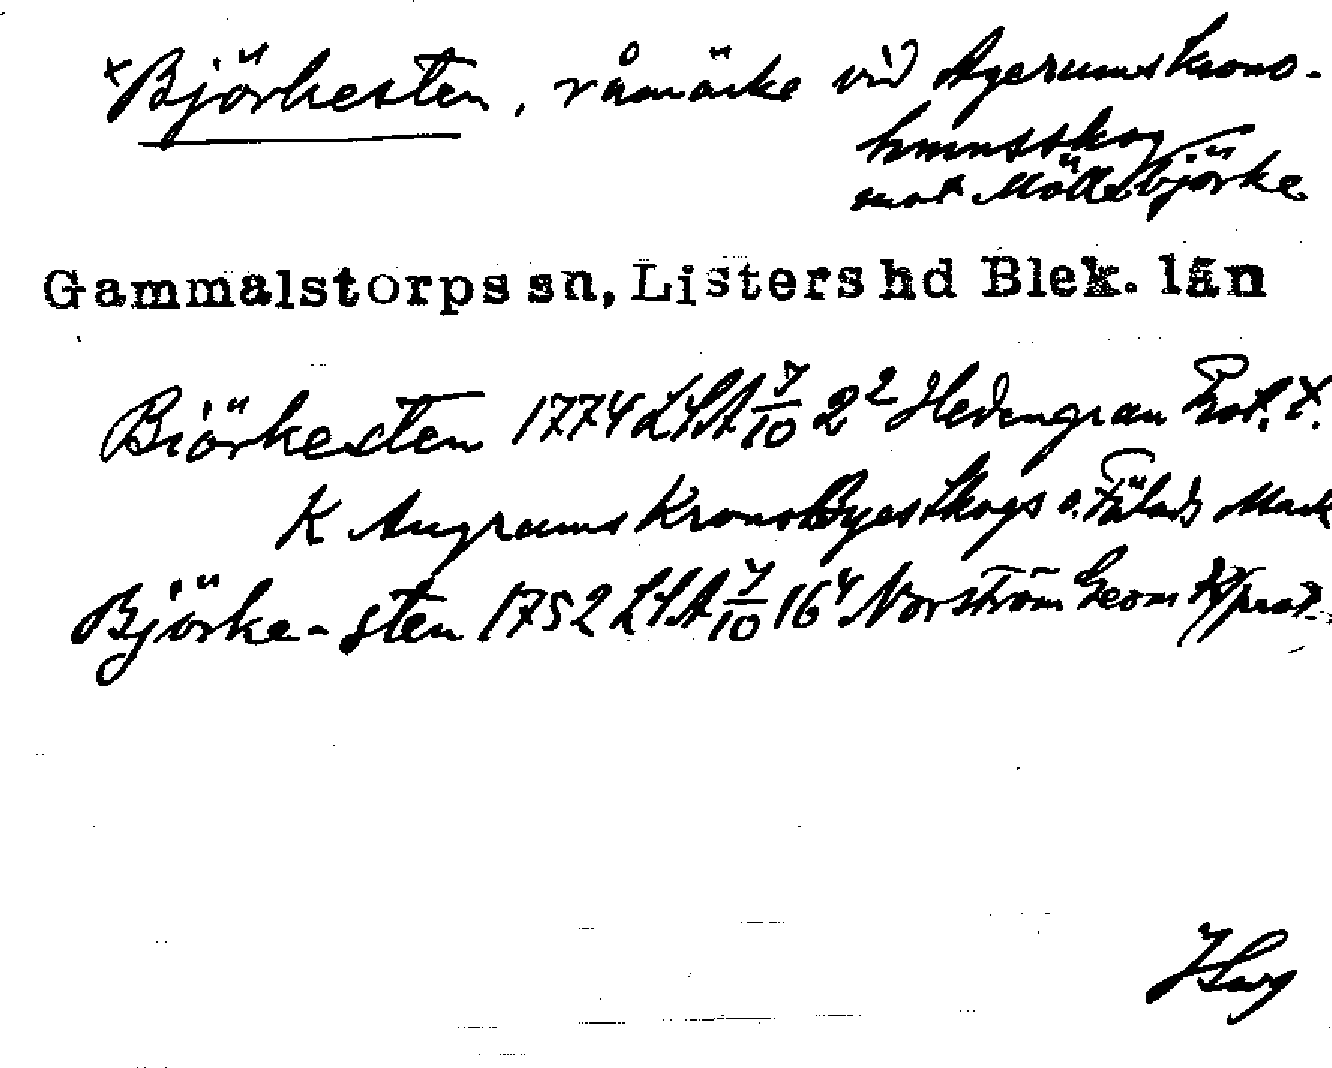 × Björkesten, råmärke vid Agerums krono-
hemmsskog
mot Möllebjörke
Gammalstorps sn, Listers hd Blek. län
Biörkesten 1774 LSA 7/10 2² Hedengran Prot. X.
K Augrums KronoByes Skogs o. Fälads Mark
Björke-sten 1752 LSA 7/10 16⁴ Norström Geom prot.